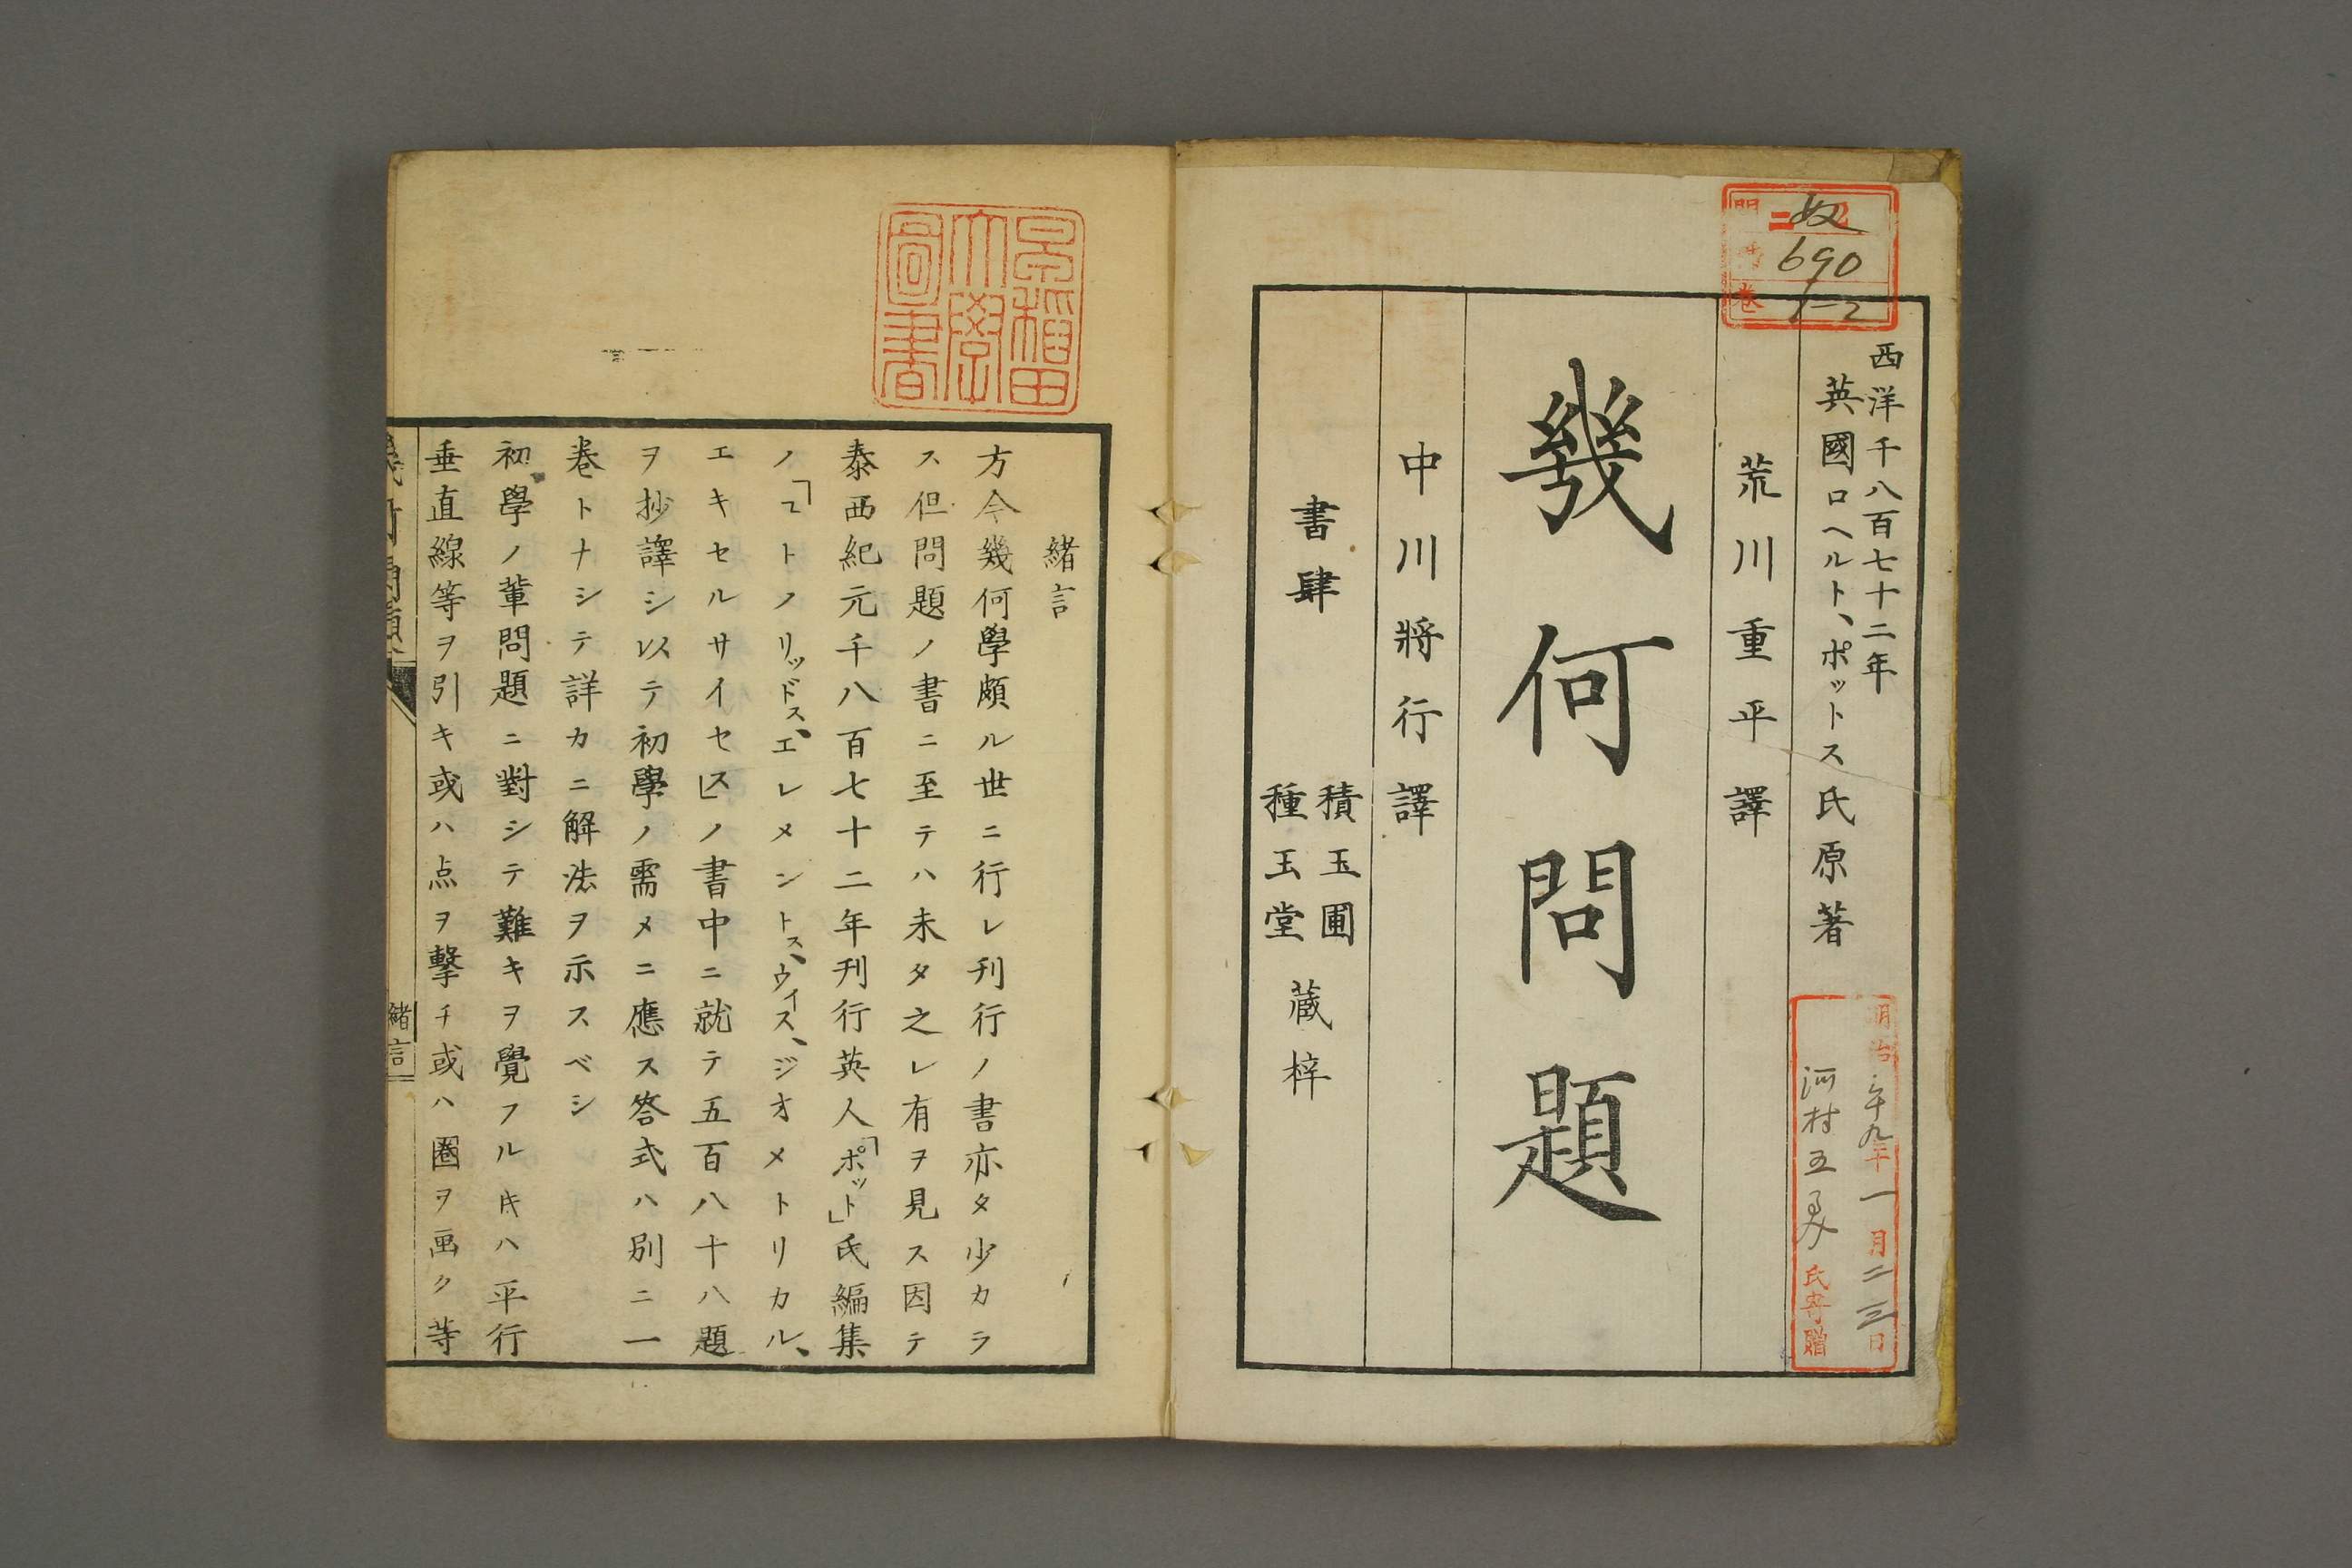 西洋千八百七十二年
英國ロヘルト、ポットス氏原著
荒川重平譯
幾何問題
中川將行譯
書肆
積玉圃
種玉堂
藏梓
690
1-2
門
卷
明治
年一月二三日
河村
氏寄贈
早稲田
大學
圖書
緒言
方今幾何學頗ル世ニ行レ刋行ノ書亦タ少カラ
ス但問題ノ書ニ至テハ未タ之レ有ヲ見ス因テ
泰西紀元千八百七十二年刋行英人「ポット」氏編集
ノ「ユトノリッドス、エレメントス、ウイス、ジオメトリカル、
エキセルサイセス」ノ書中ニ就テ五百八十八題
ヲ抄譯シ以テ初學ノ需メニ應ス答式ハ別ニ一
巻トナシテ詳カニ解法ヲ示スベシ
初學ノ輩問題ニ對シテ難キヲ覺フル𪜈ハ平行
垂直線等ヲ引キ或ハ点ヲ撃チ或ハ圏ヲ画ク等
幾何問題
緒言